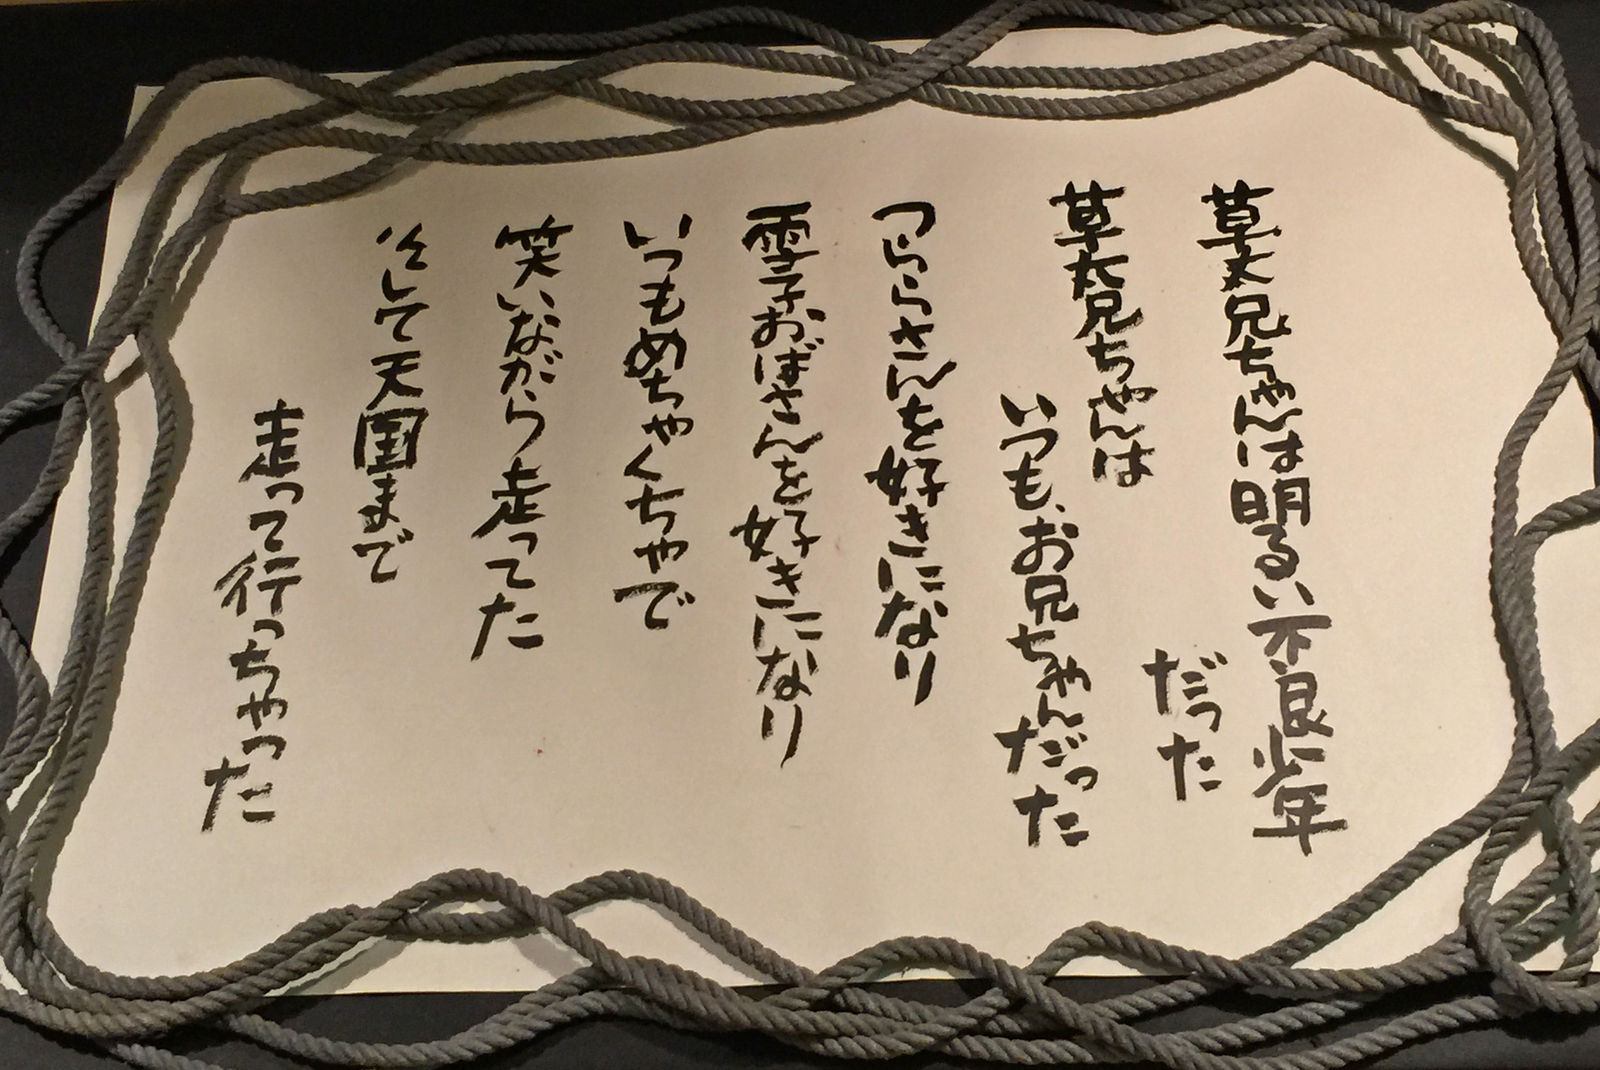 草太兄ちゃんは明るい不良少年
だった
草太兄ちゃんは
いつも、お兄ちゃんだった
つららさんを好きになり
雪子おばさんを好きになり
いつもめちゃくちゃで
笑いながら走ってた
そして天国まで
走って行っちゃった